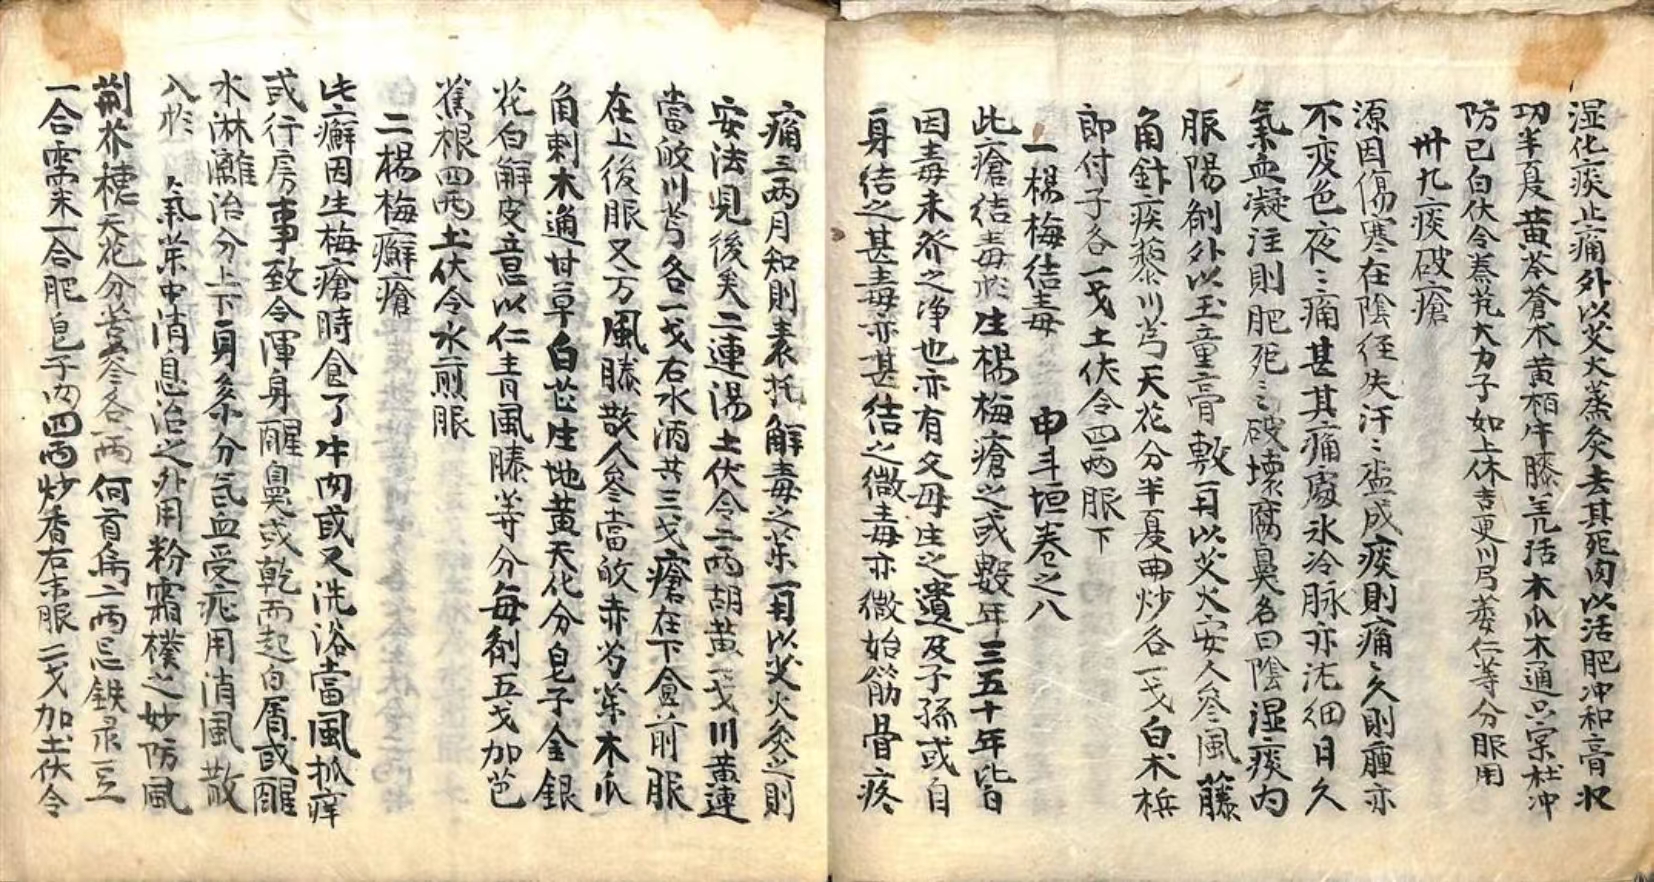 湿化痰止痛外以艾火蒸灸去其死肉以活肥冲和膏收
功半夏黄芩蒼术黄栢牛膝羌活木瓜木通只宗杜冲
防已白伏令蒌芘大力子如上休吉更川芎蒌仁等分服用
卅九痰破瘡
源因傷寒在陰径失汗〻盃成痰則痛〻久則腫亦
不变色夜〻痛甚其痛處氷冷脉亦沈细日久
氣血凝注則肥死〻破壊腐臭名曰陰湿痰内
服陽剂外以玉童膏敷一月以艾火安人參風藤
角針疾藜川芎天花分半夏曲炒各一戈白术梹
郎付子各一戈土伏令四两服下
一楊梅结毒 申斗垣卷之八
此瘡结毒於生楊梅瘡之或數年三五十年皆
因毒未發之净也亦有父母生之遺及子孫或自
身结之甚毒亦甚结之微毒亦微始筋骨疼
痛三两月知則表托解毒之茱一月以艾火灸之則
安法見後矣二連湯土伏令二两胡黄一戈川黄連
當皈川芎各一戈右水酒共三戈瘡在下食前服
在上後服又方風藤散人參當皈赤芍茱木瓜
角刺木通甘草白芷生地黄天化分皂子金銀
花白鮮皮意以仁青風藤等分每剂五戈加芭
蕉根四两土伏令水煎服
二楊梅癬瘡
此癬因生梅瘡時食了牛肉或又洗浴當風抓痒
或行房事致令渾身醒臭或乾而起白屑或醒
水淋灕治分上下身系分氣血受症用消風散
入於 氣茱中消息治之外用粉霜樸之妙防風
荆芥穗天花分苦參各一两何首烏二两忌鉄录豆
一合糯米一合肥皂子肉四两炒香右末服二戈加土伏令